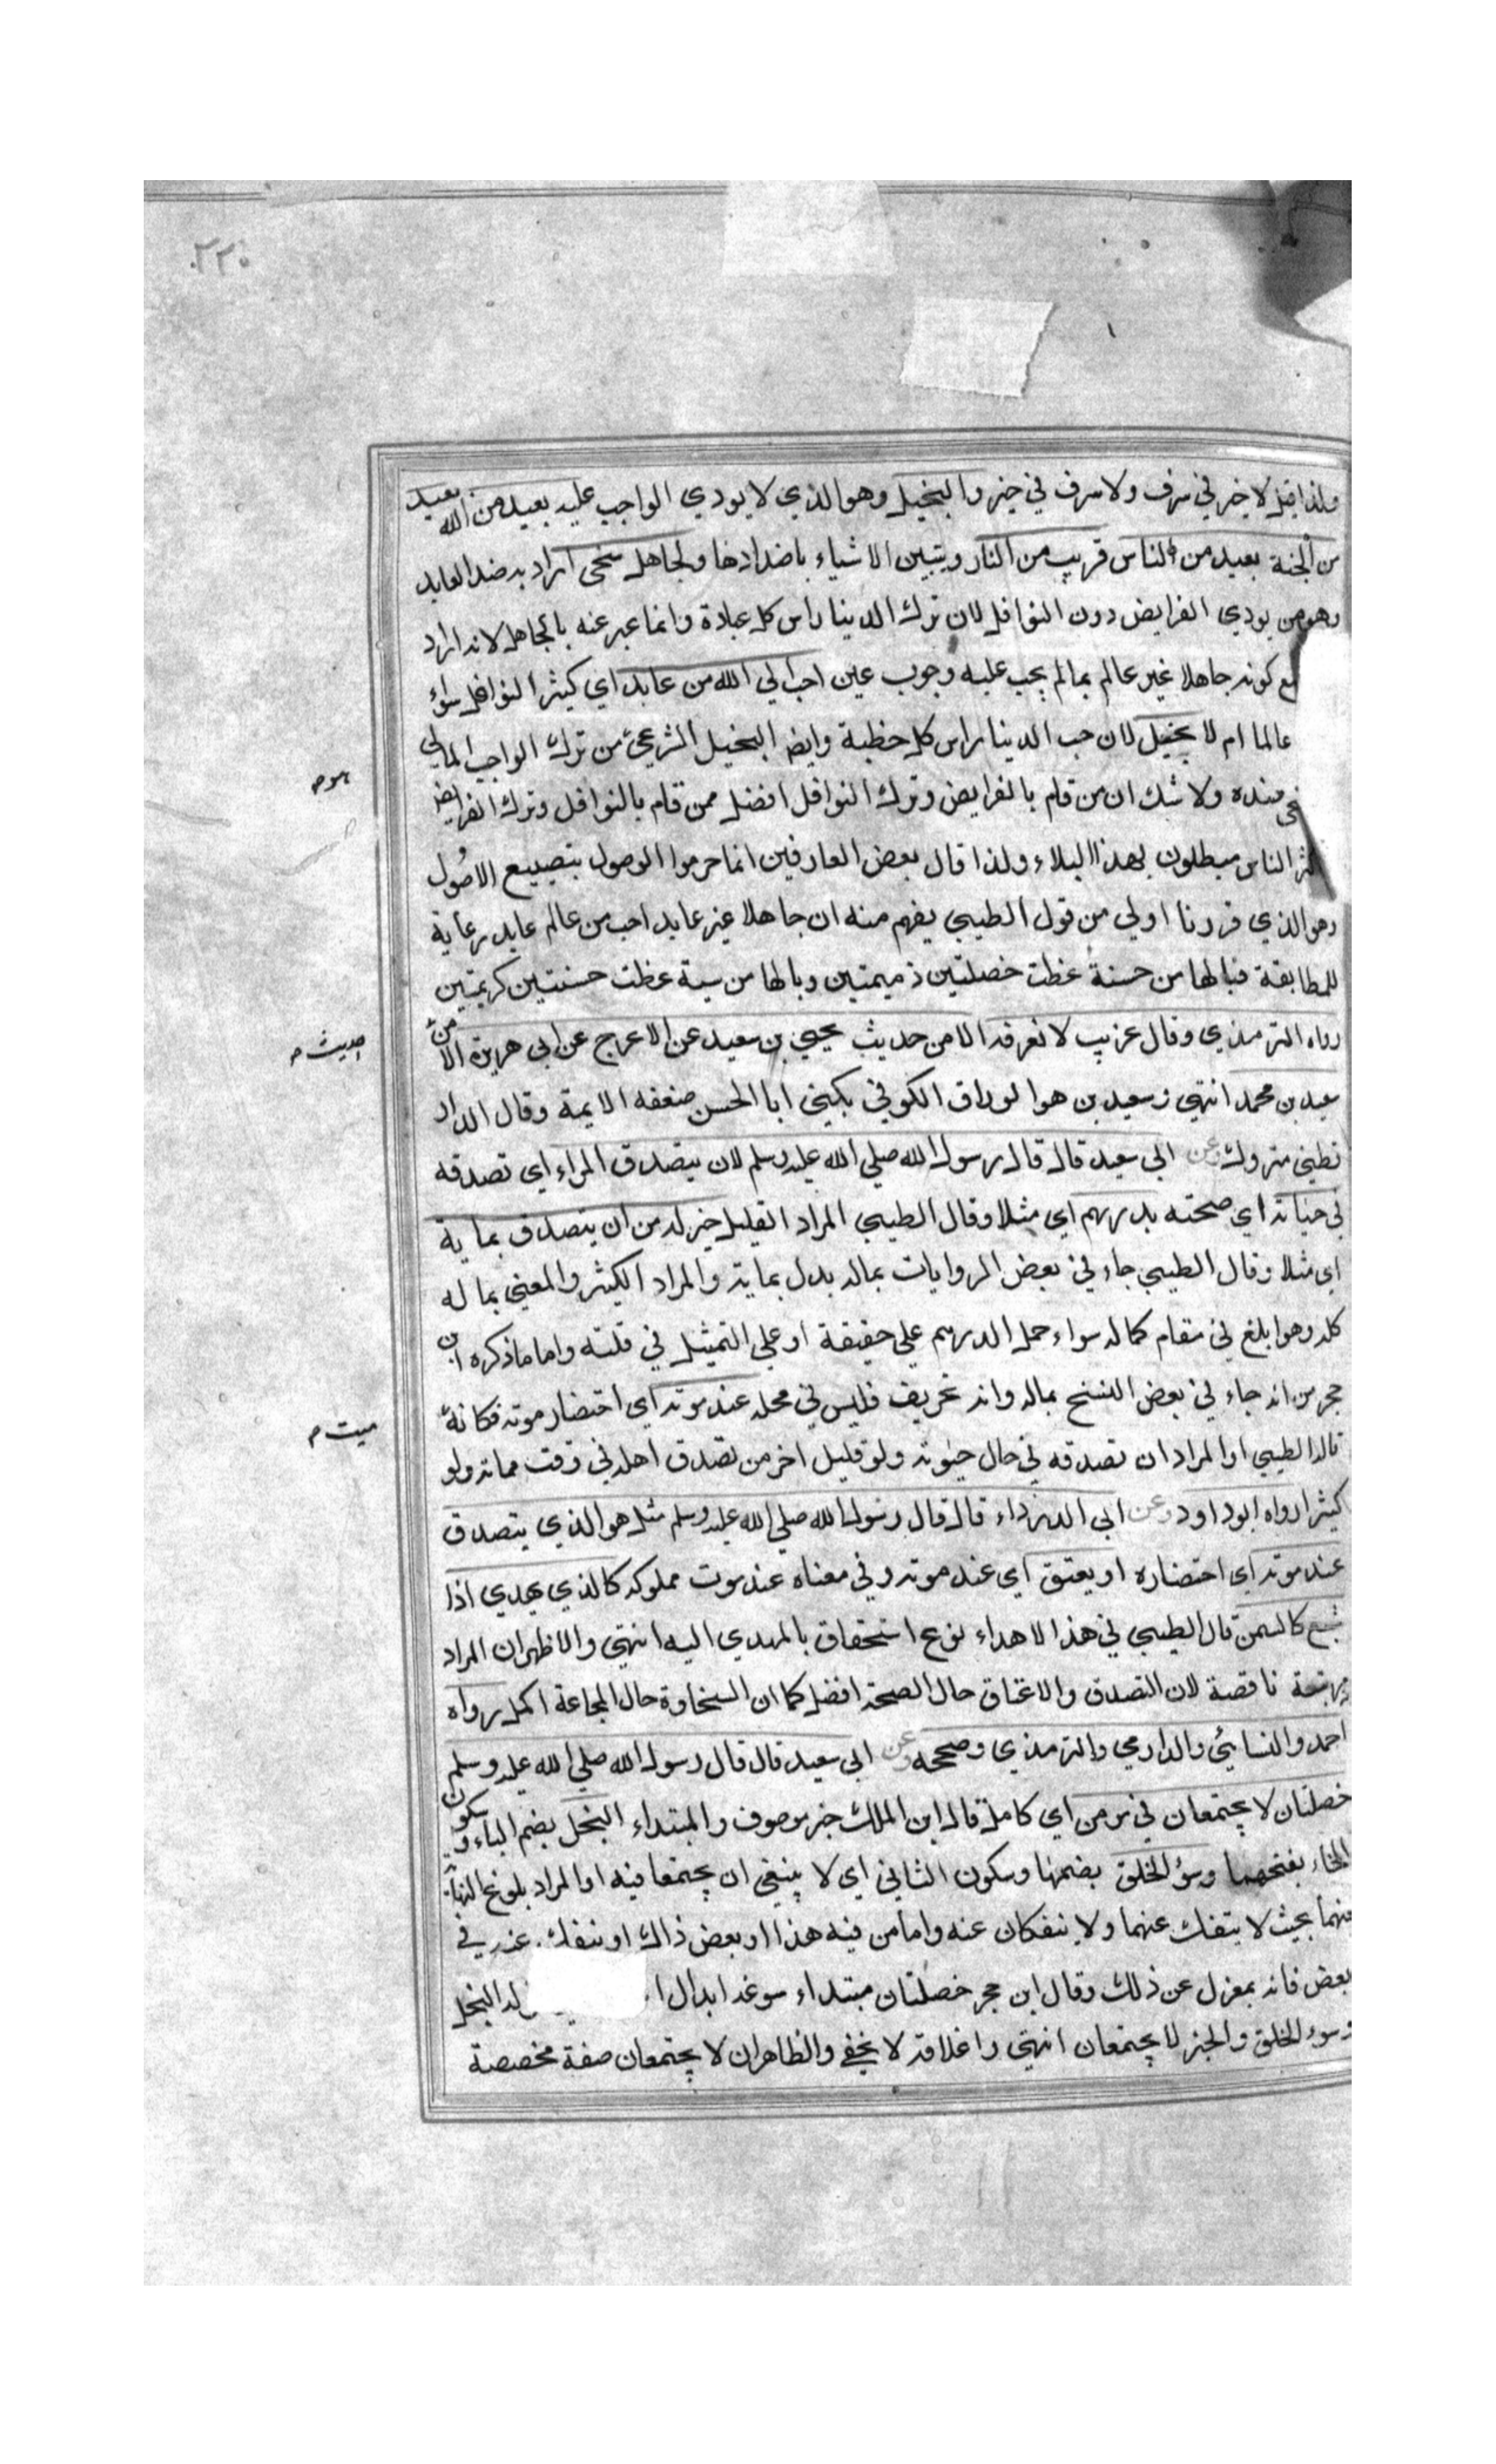 ٢٢٠
ولذا قيل لا خير في سرف ولا سرف في خير والبخيل وهو الذي لا يودي الواجب عليه بعيد من الله بعيد
من الجنة بعيد من الناس قريب من النار ويتبين الاشياء باضدادها ولجاهل سخي اراد به ضد العابد
وهو من يودي الفرايض دون النوافل لان ترك الدينا راس كل عبادة وانما عبر عنه بالجاهل لانه اراد
مع كونه جاهلا غير عالم بمالم يجب عليه وجوب عين احب الي الله من عابد اي كثير النوافل سواء
عالما ام لا بخيل لان حب الدينا راس كل خطية وايضا البخيل الشرعي من ترك الواجب المالي
هو م
عنده ولا شك ان من قام بالفرايض وترك النوافل افضل ممن قام بالنوافل وترك الفرايض
الناس مبطلون بهذا البلاء ولذا قال بعض العارفين انما حرموا الوصول بتضييع الاصول
وهو الذي قررنا اولي من قول الطيبي يفهم منه ان جاهلا غير عابد احب من عالم عابد رعاية
للمطابقة فيالها من حسنة غطت خصلتين ذميمتين ويالها من سية غطت حسنتين كريمتين
رواه الترمذي وقال غريب لا نعرفه الا من حديث يحيي بن سعيد عن الاعرج عن ابي هريرة الا من
حديث م
سعيد بن محمد انتهي وسعيد بن هو الوراق الكوفي يكني ابا الحسن ضعفه الايمة وقال الدار
قطني متروك وعن ابي سعيد قال قال رسول الله صلي الله عليه وسلم لان يتصدق المراء اي تصدقه
في حياته اي صحته بدرهم اي مثلا وقال الطيبي المراد القليل خير له من ان يتصدق بماية
اي مثلا وقال الطيبي جاء في بعض الروايات بماله بدل بماية والمراد الكثير والمعني بماله
كله وهو ابلغ في مقام كماله سواء حمل الدرهم علي حقيقة او علي التمثيل في قلته واما ما ذكره ابن
حجر من انه جاء في بعض النسخ بماله وانه تحريف فليس في محله عند موته اي احتضار موته فكانه
ميت م
قاله الطيبي او المراد ان تصدقه في حال حيوته ولو قليل اخر من تصدق اهله في وقت مماته ولو
كثيرا رواه ابو داود وعن ابي الدرداء قال قال رسول الله صلي الله عليه وسلم مثل هو الذي يتصدق
عند موته اي احتضاره او يعتق اي عند موته وفي معناه عند موت مملوكه كالذي يهدي اذا
شبع كالسمن قال الطيبي في هذا الاهداء نوع استحقاق بالمهدي اليه انتهي والاظهر ان المراد
مرتبة ناقصة لان التصدق والاعتاق حال الصحة افضل كما ان السخاوة حال المجاعة اكمل رواه
احمد والنسائي والدارمي والترمذي وصححه وعن ابي سعيد قال قال رسول الله صلي الله عليه وسلم
خصلتان لا يجتمعان في مومن اي كامل قال ابن الملك خبر موصوف والمبتداء البخل بضم الباء وسكون
الخاء بفتحهما وسؤ الخلق بضمها وسكون الثاني اي لا ينبغي ان يجتمعا فيه او المراد بلوغ النهاية
فيهما بحيث لا يتفك عنهما ولا ينفكان عنه واما من فيه هذا او بعض ذاك او ينفك عنه في
بعض فانه بمعزل عن ذلك وقال ابن حجر خصلتان مبتداء سوغه ابدال البخل
وسوء الخلق والخبر لا يجتمعان انتهي واغلاقه لا يخفي والظاهر ان لا يجتمعان صفة مخصصة